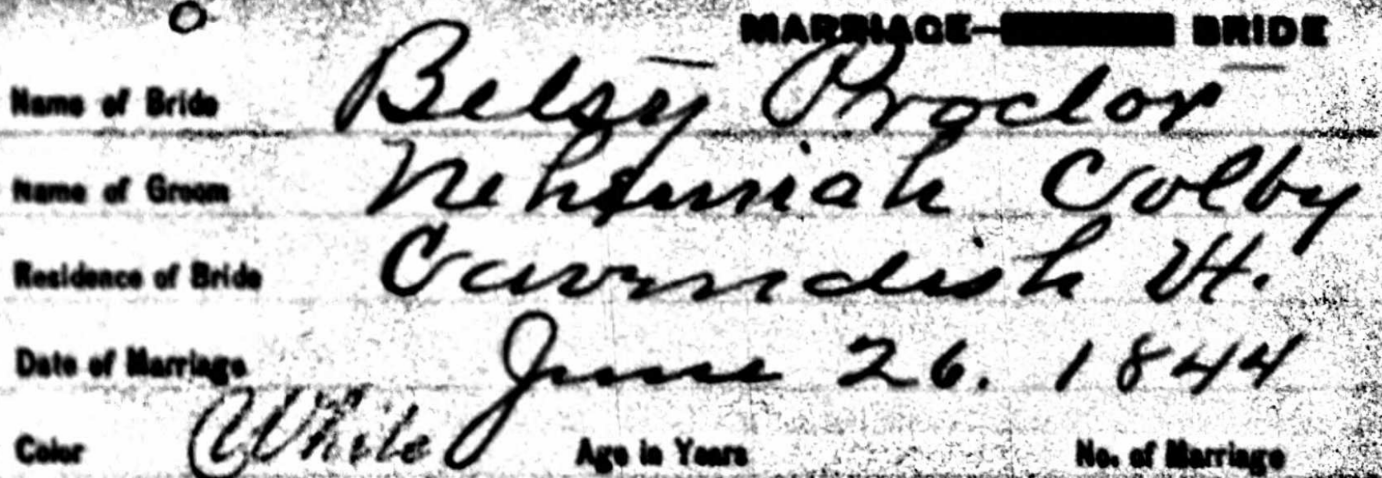 MARRIAGE— BRIDE
Name of Bride Betsy Proctor
Name of Groom Nehemiah Colby
Residence of Bride Cavendish Vt.
Date of Marriage June 26. 1844
Color White Age in Years No. of Marriage